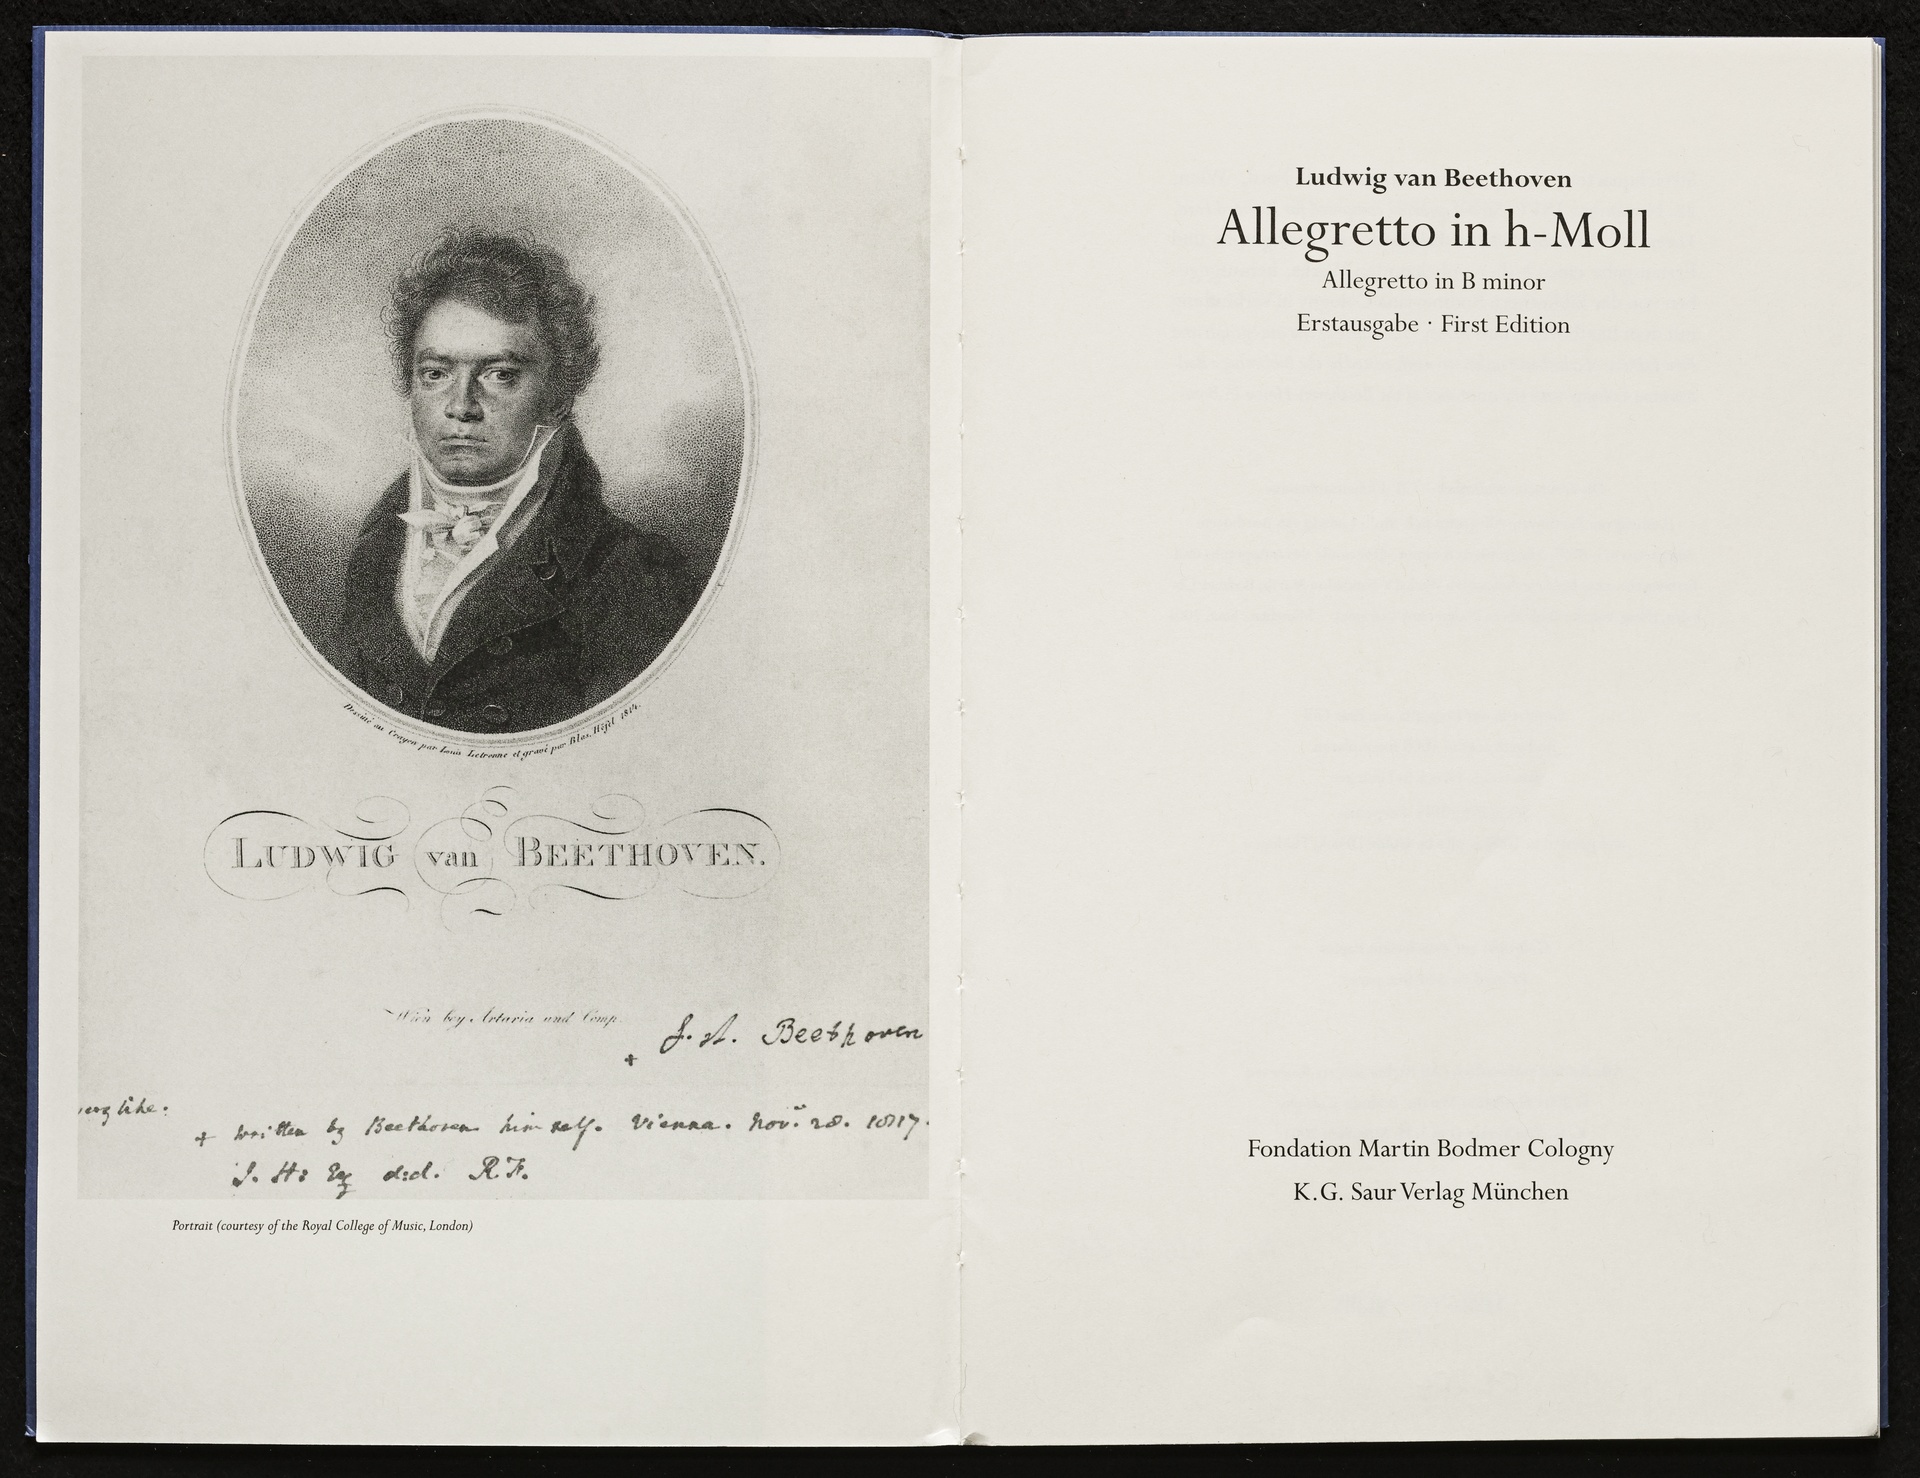 Dessiné au Crayon par Louis Letronne et gravé par Blas. Höfel 1814.
LUDWIG van BEETHOVEN.
Wien bey Artaria und Comp.
Beethoven
+
very like:
+ written by Beethoven himself. Vienna. Nov. 28. 1817.
J. H: Esq d:d. R.F.
Portrait (courtesy of the Royal College of Music, London)
Ludwig van Beethoven
Allegretto in h-Moll
Allegretto in B minor
Erstausgabe · First Edition
Fondation Martin Bodmer Cologny
K.G. Saur Verlag München